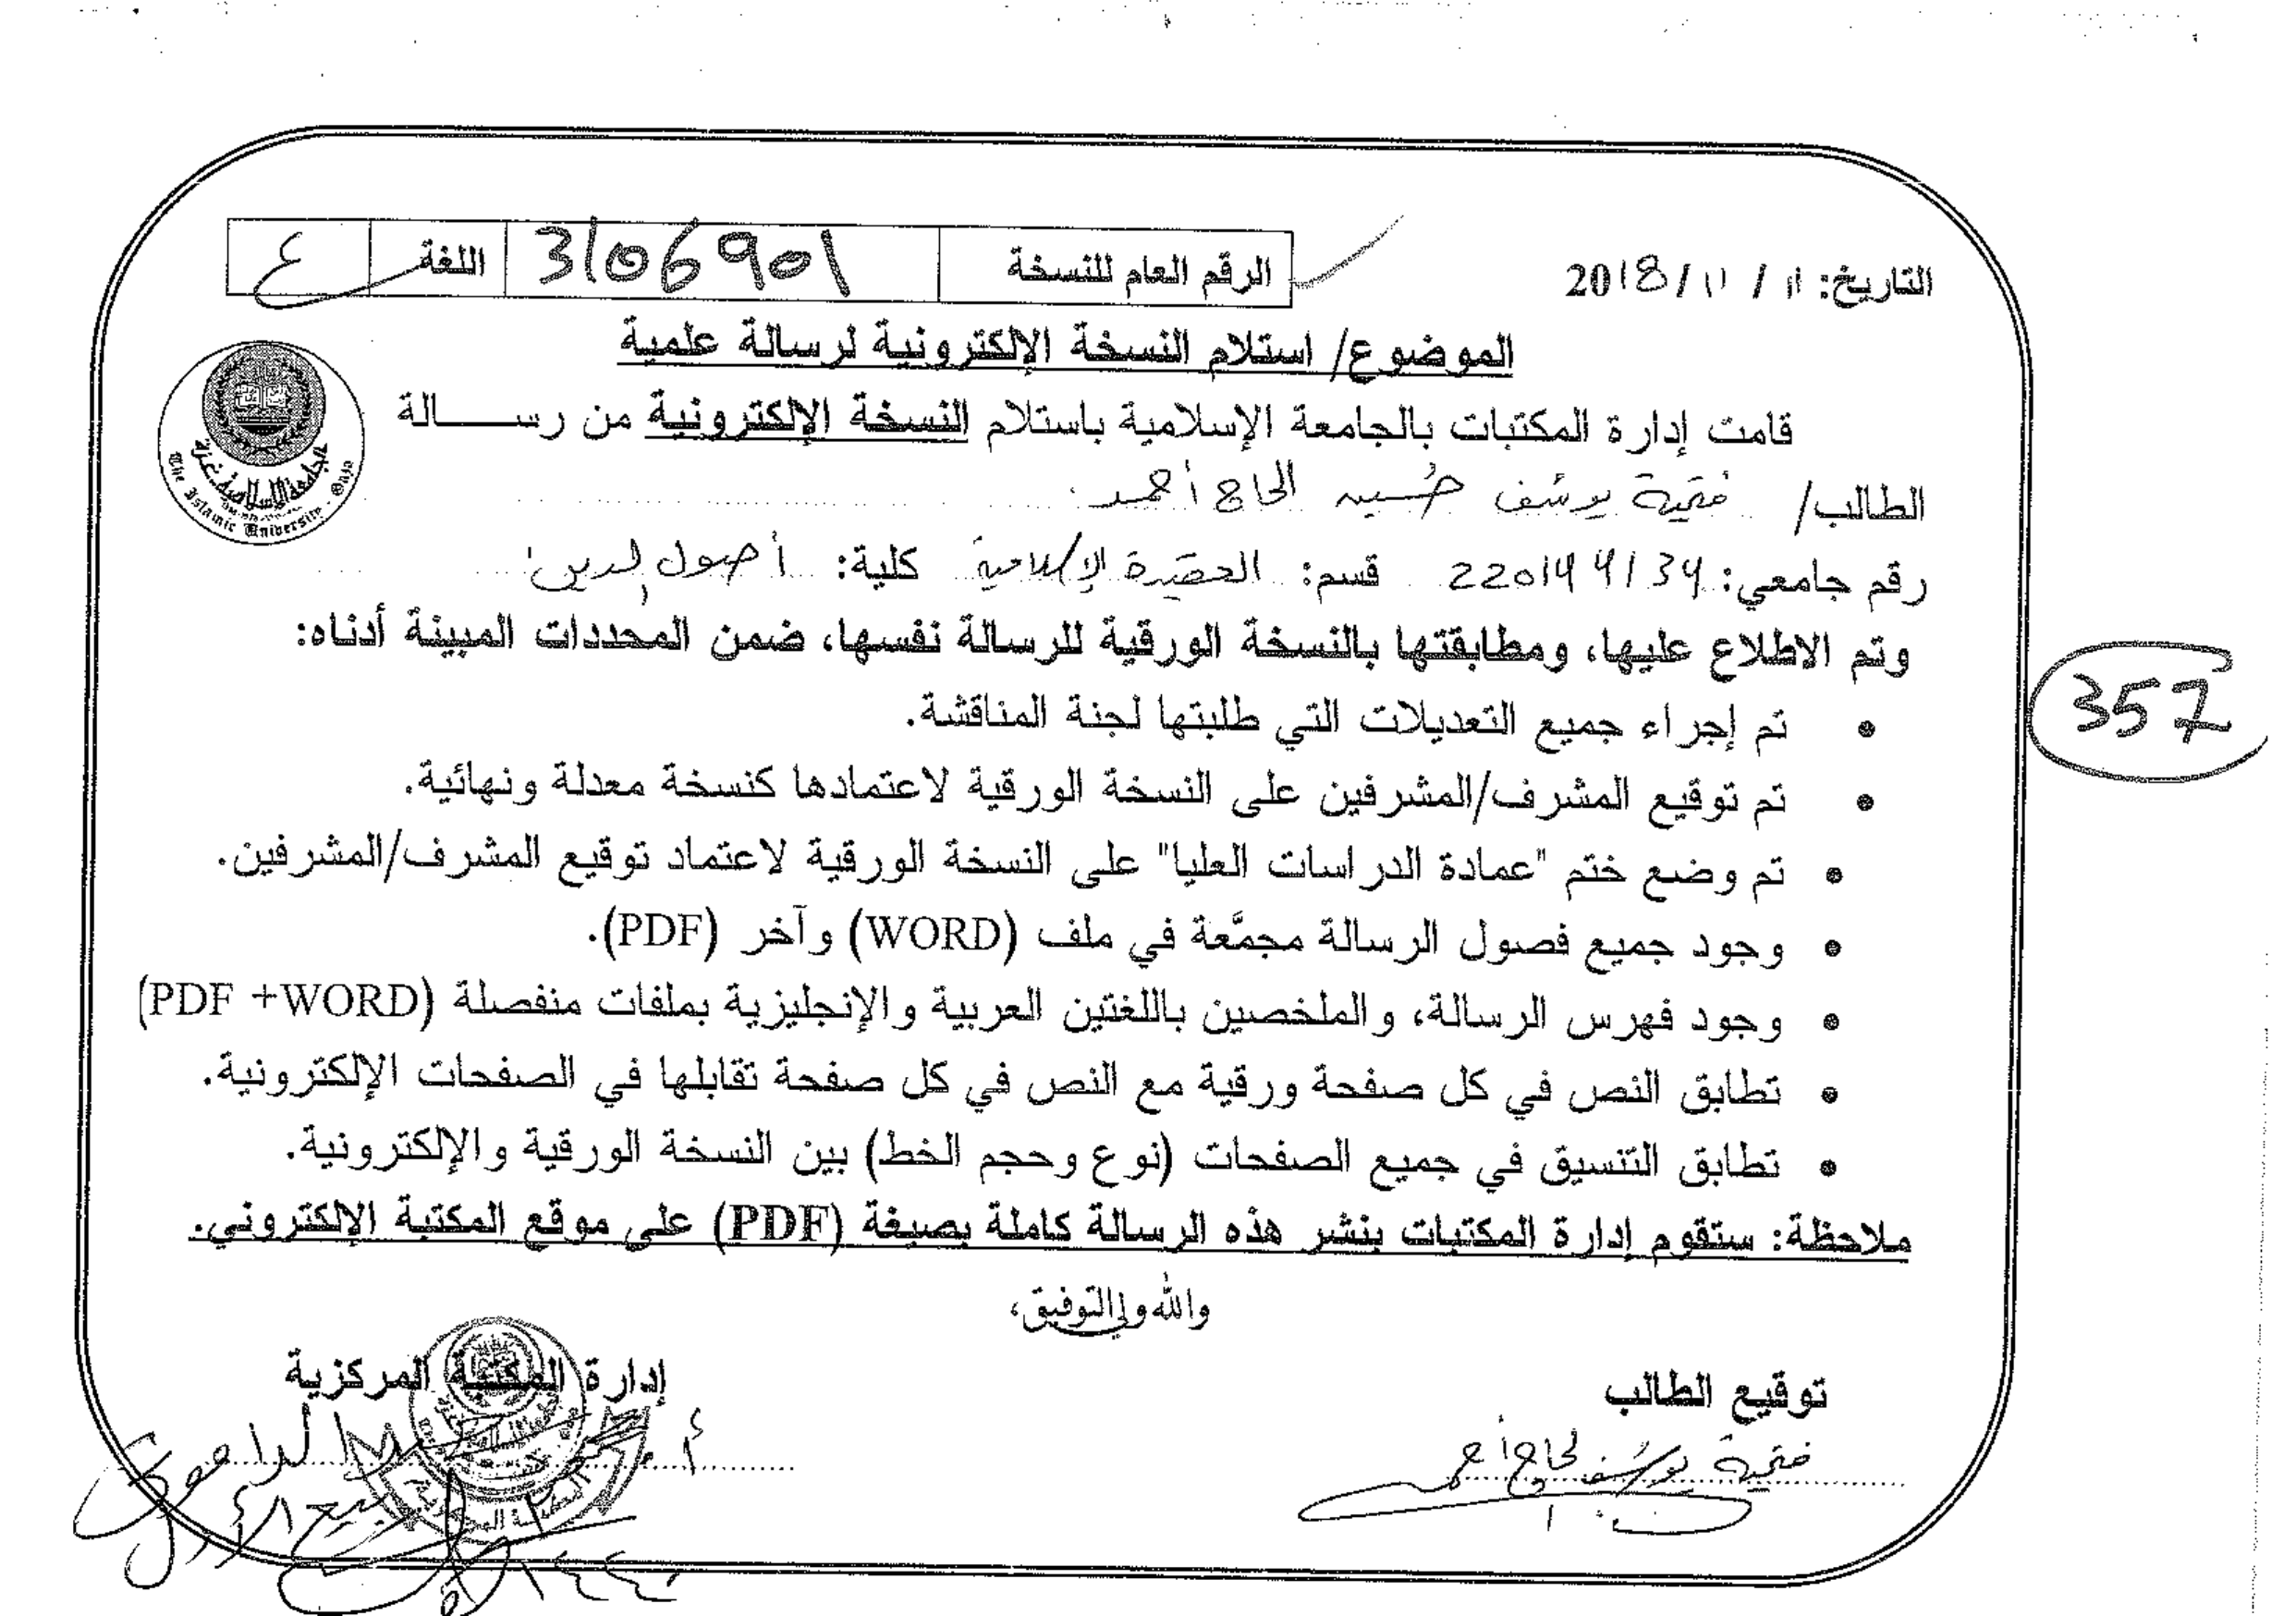 التاريخ: 11 / 11 / 2018
الرقم العام للنسخة 3106901 اللغة ع
الموضوع/ استلام النسخة الإلكترونية لرسالة علمية
قامت إدارة المكتبات بالجامعة الإسلامية باستلام النسخة الإلكترونية من رسالة
الطالب/ فتحية يوسف حسين الحاج أحمد
رقم جامعي: قسم: العقيدة الإسلامية كلية: أصول الدين
وتم الاطلاع عليها، ومطابقتها بالنسخة الورقية للرسالة نفسها، ضمن المحددات المبينة أدناه:
357
• تم إجراء جميع التعديلات التي طلبتها لجنة المناقشة.
• تم توقيع المشرف/المشرفين على النسخة الورقية لاعتمادها كنسخة معدلة ونهائية.
• تم وضع ختم "عمادة الدراسات العليا" على النسخة الورقية لاعتماد توقيع المشرف/المشرفين.
• وجود جميع فصول الرسالة مجمَّعة في ملف (WORD) وآخر (PDF).
• وجود فهرس الرسالة، والملخصين باللغتين العربية والإنجليزية بملفات منفصلة (PDF +WORD)
• تطابق النص في كل صفحة ورقية مع النص في كل صفحة تقابلها في الصفحات الإلكترونية.
• تطابق التنسيق في جميع الصفحات (نوع وحجم الخط) بين النسخة الورقية والإلكترونية.
ملاحظة: ستقوم إدارة المكتبات بنشر هذه الرسالة كاملة بصيغة (PDF) على موقع المكتبة الإلكتروني.
والله ولي التوفيق،
توقيع الطالب
إدارة المكتبة المركزية
فتحية يوسف الحاج أحمد
الجامعة الإسلامية غزة
The Islamic University - Gaza